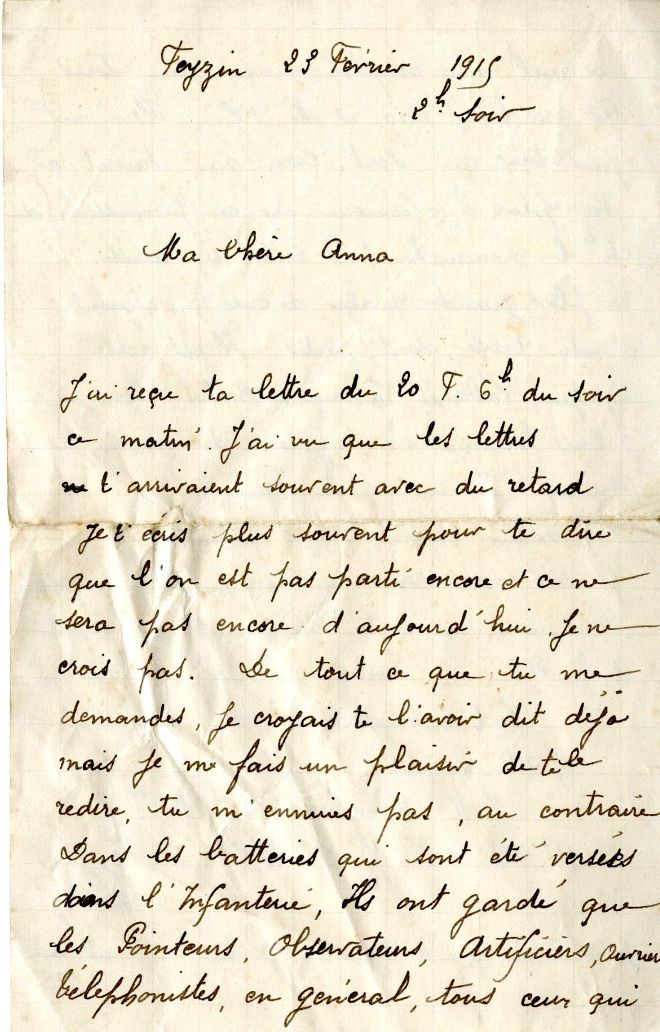 Feyzin 23 Février 1915
2h soir
Ma Chère Anna
J'ai reçu ta lettre du 20 F. 6h du soir
ce matin. J'ai vu que les lettres
t'arrivaient souvent avec du retard
Je t'écris plus souvent pour te dire
que l'on est pas parti encore et ce ne
sera pas encore d'aujourd'hui. Je ne
crois pas. De tout ce que tu me
demandes, je croyais te l'avoir dit déjà
mais je me fais un plaisir de te le
redire, tu m'ennuies pas, au contraire
Dans les batteries qui sont été versés
dans l'Infanterie, Ils ont gardé que
les Pointeurs, Observateurs, Artificiers, Ouvrier
télephonistes, en général, tous ceux qui